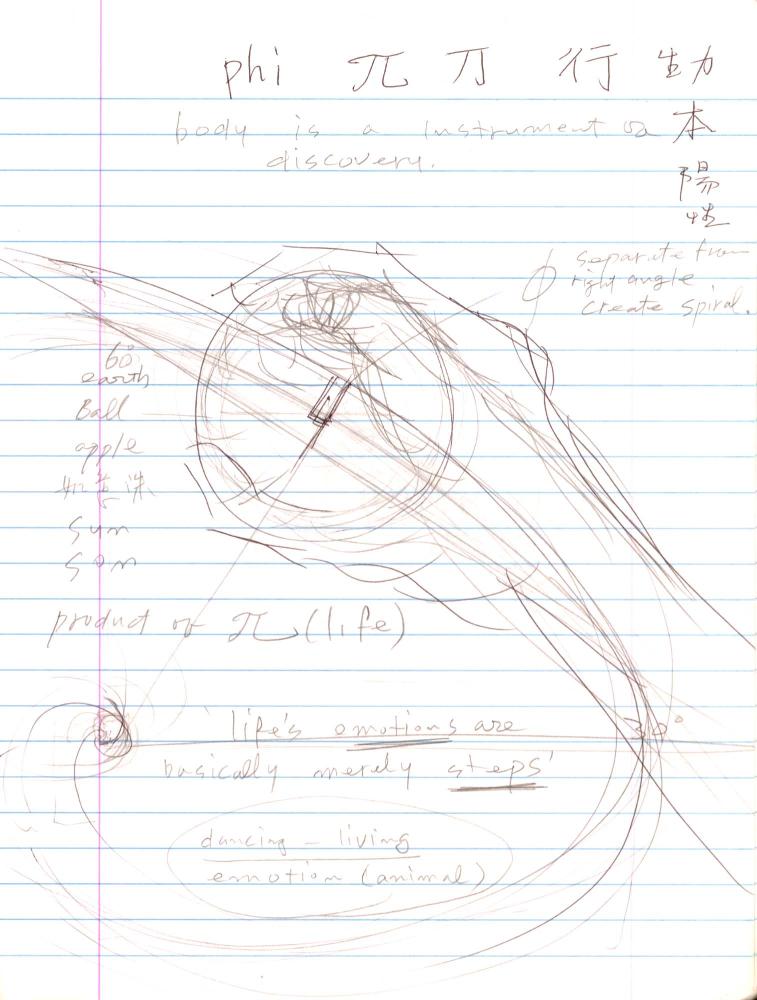 phi π 刀 行 動
body is a instrument of
discovery.
本
陽
性
ϕ separate from
right angle
create spiral.
60°
earth
Ball
apple
sun
son
product of π (life)
life's emotions are
basically merely steps
30°
dancing - living
emotion (animal)